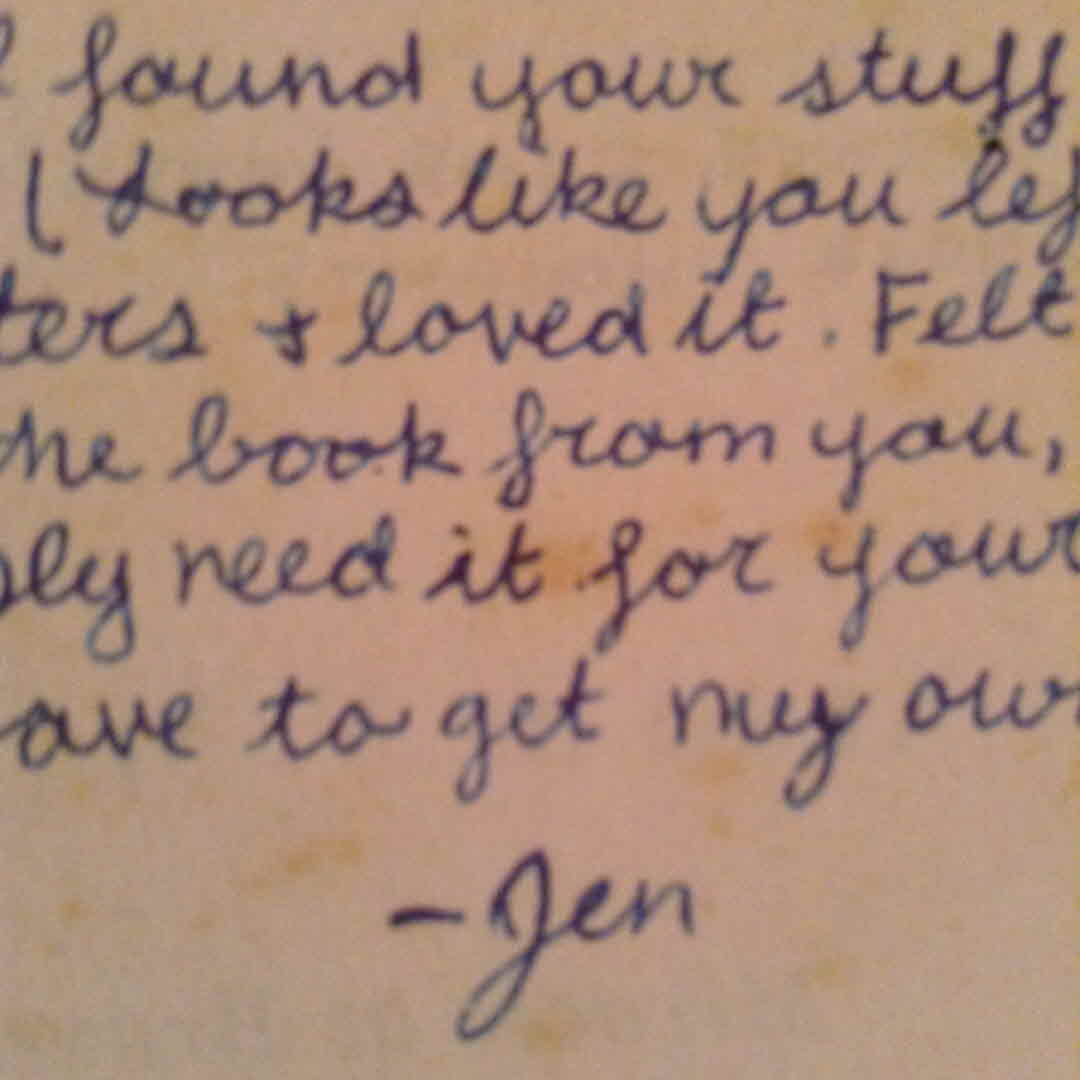 found your stuff
(Looks like you lef
ters & loved it. Felt
the book from you,
bly need it for your
ave to get my own
- Jen